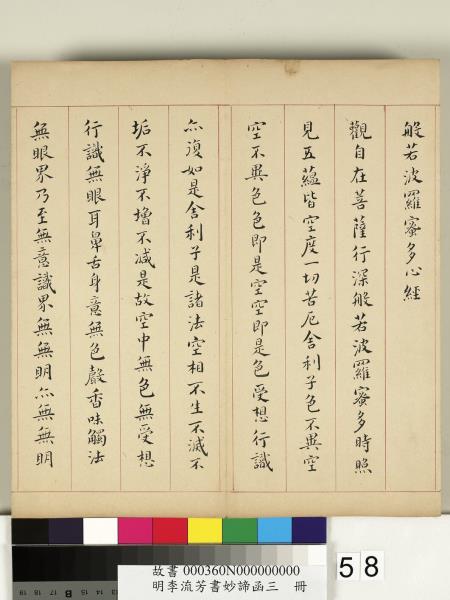 般若波羅蜜多心經
觀自在菩薩行深般若波羅蜜多時照
見五蘊皆空度一切苦厄舍利子色不異空
空不異色色即是空空即是色受想行識
亦復如是舍利子是諸法空相不生不滅不
垢不淨不增不減是故空中無色無受想
行識無眼耳鼻舌身意無色聲香味觸法
無眼界乃至無意識界無無明亦無無明
故書 000360N000000000
明李流芳書妙諦函三 冊
58